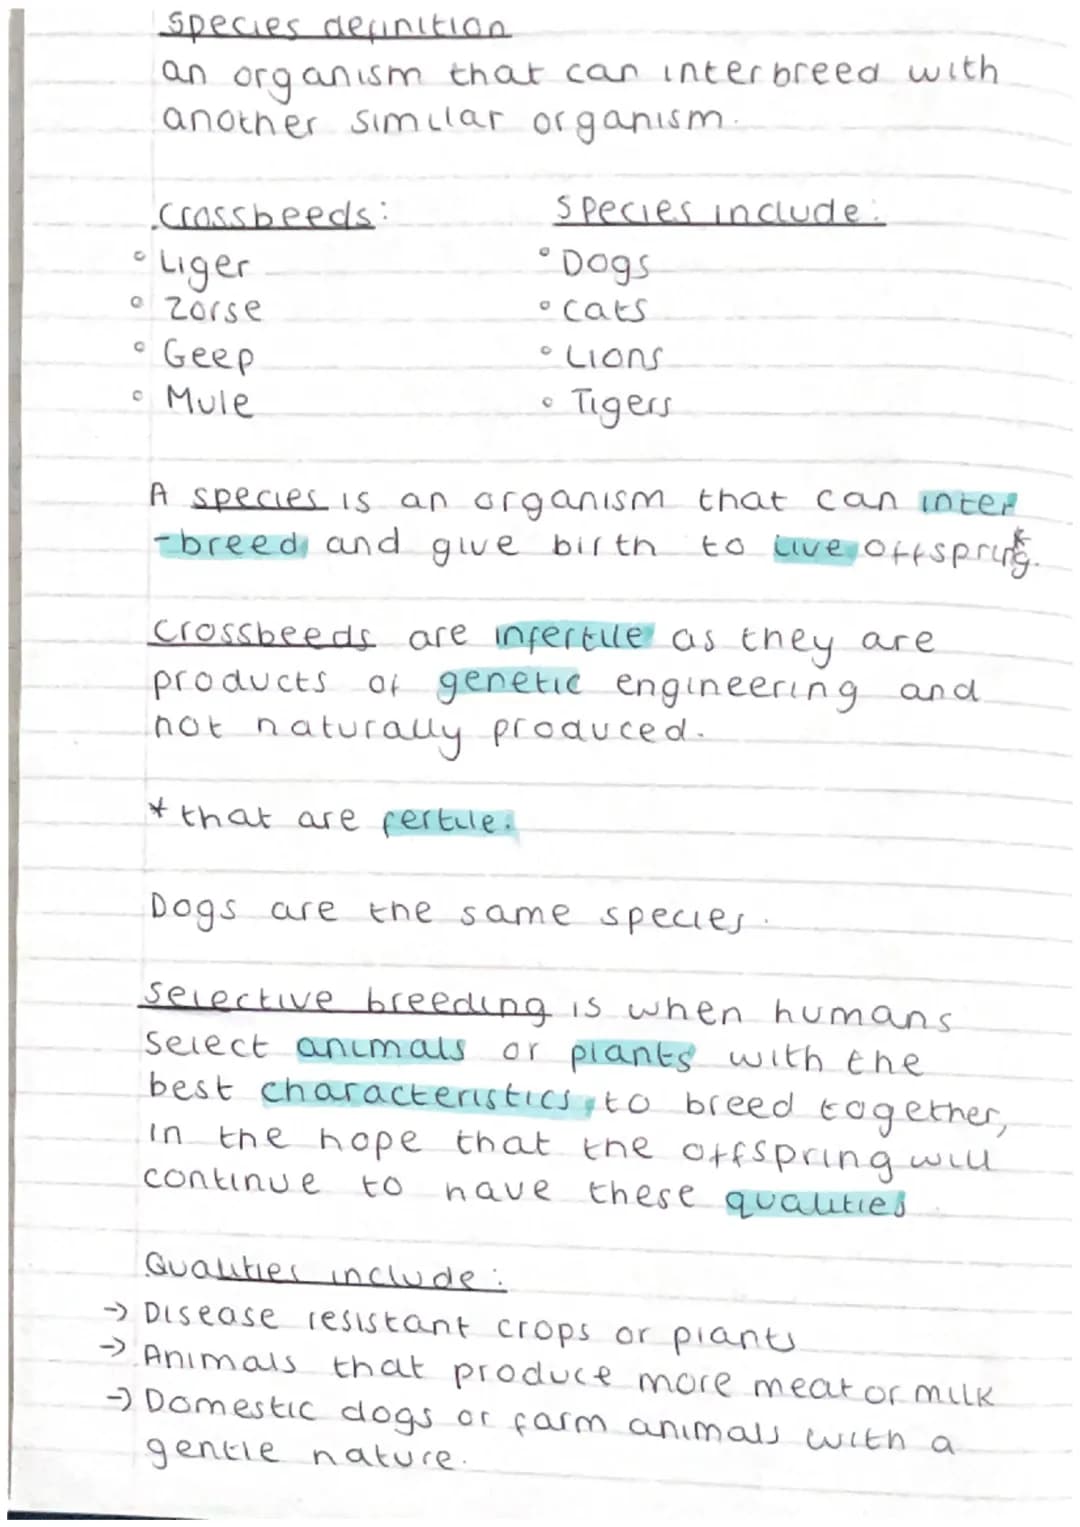 Species definition
an organism that can interbreed with
another similar organism.
Crossbeeds:
Species include:
• Liger
• Dogs
• Zorse
• Cats
• Geep
• Lions
• Mule
• Tigers
A species is an organism that can inter
-breed and give birth to live offspring.*
Crossbeeds are infertile as they are
products of genetic engineering and
not naturally produced.
* that are fertile.
Dogs are the same species.
Selective breeding is when humans
select animals or plants with the
best characteristics to breed together,
in the hope that the offspring will
continue to have these qualities
Qualities include:
→ Disease resistant crops or plants
→ Animals that produce more meat or milk
→ Domestic dogs or farm animals with a
gentle nature.